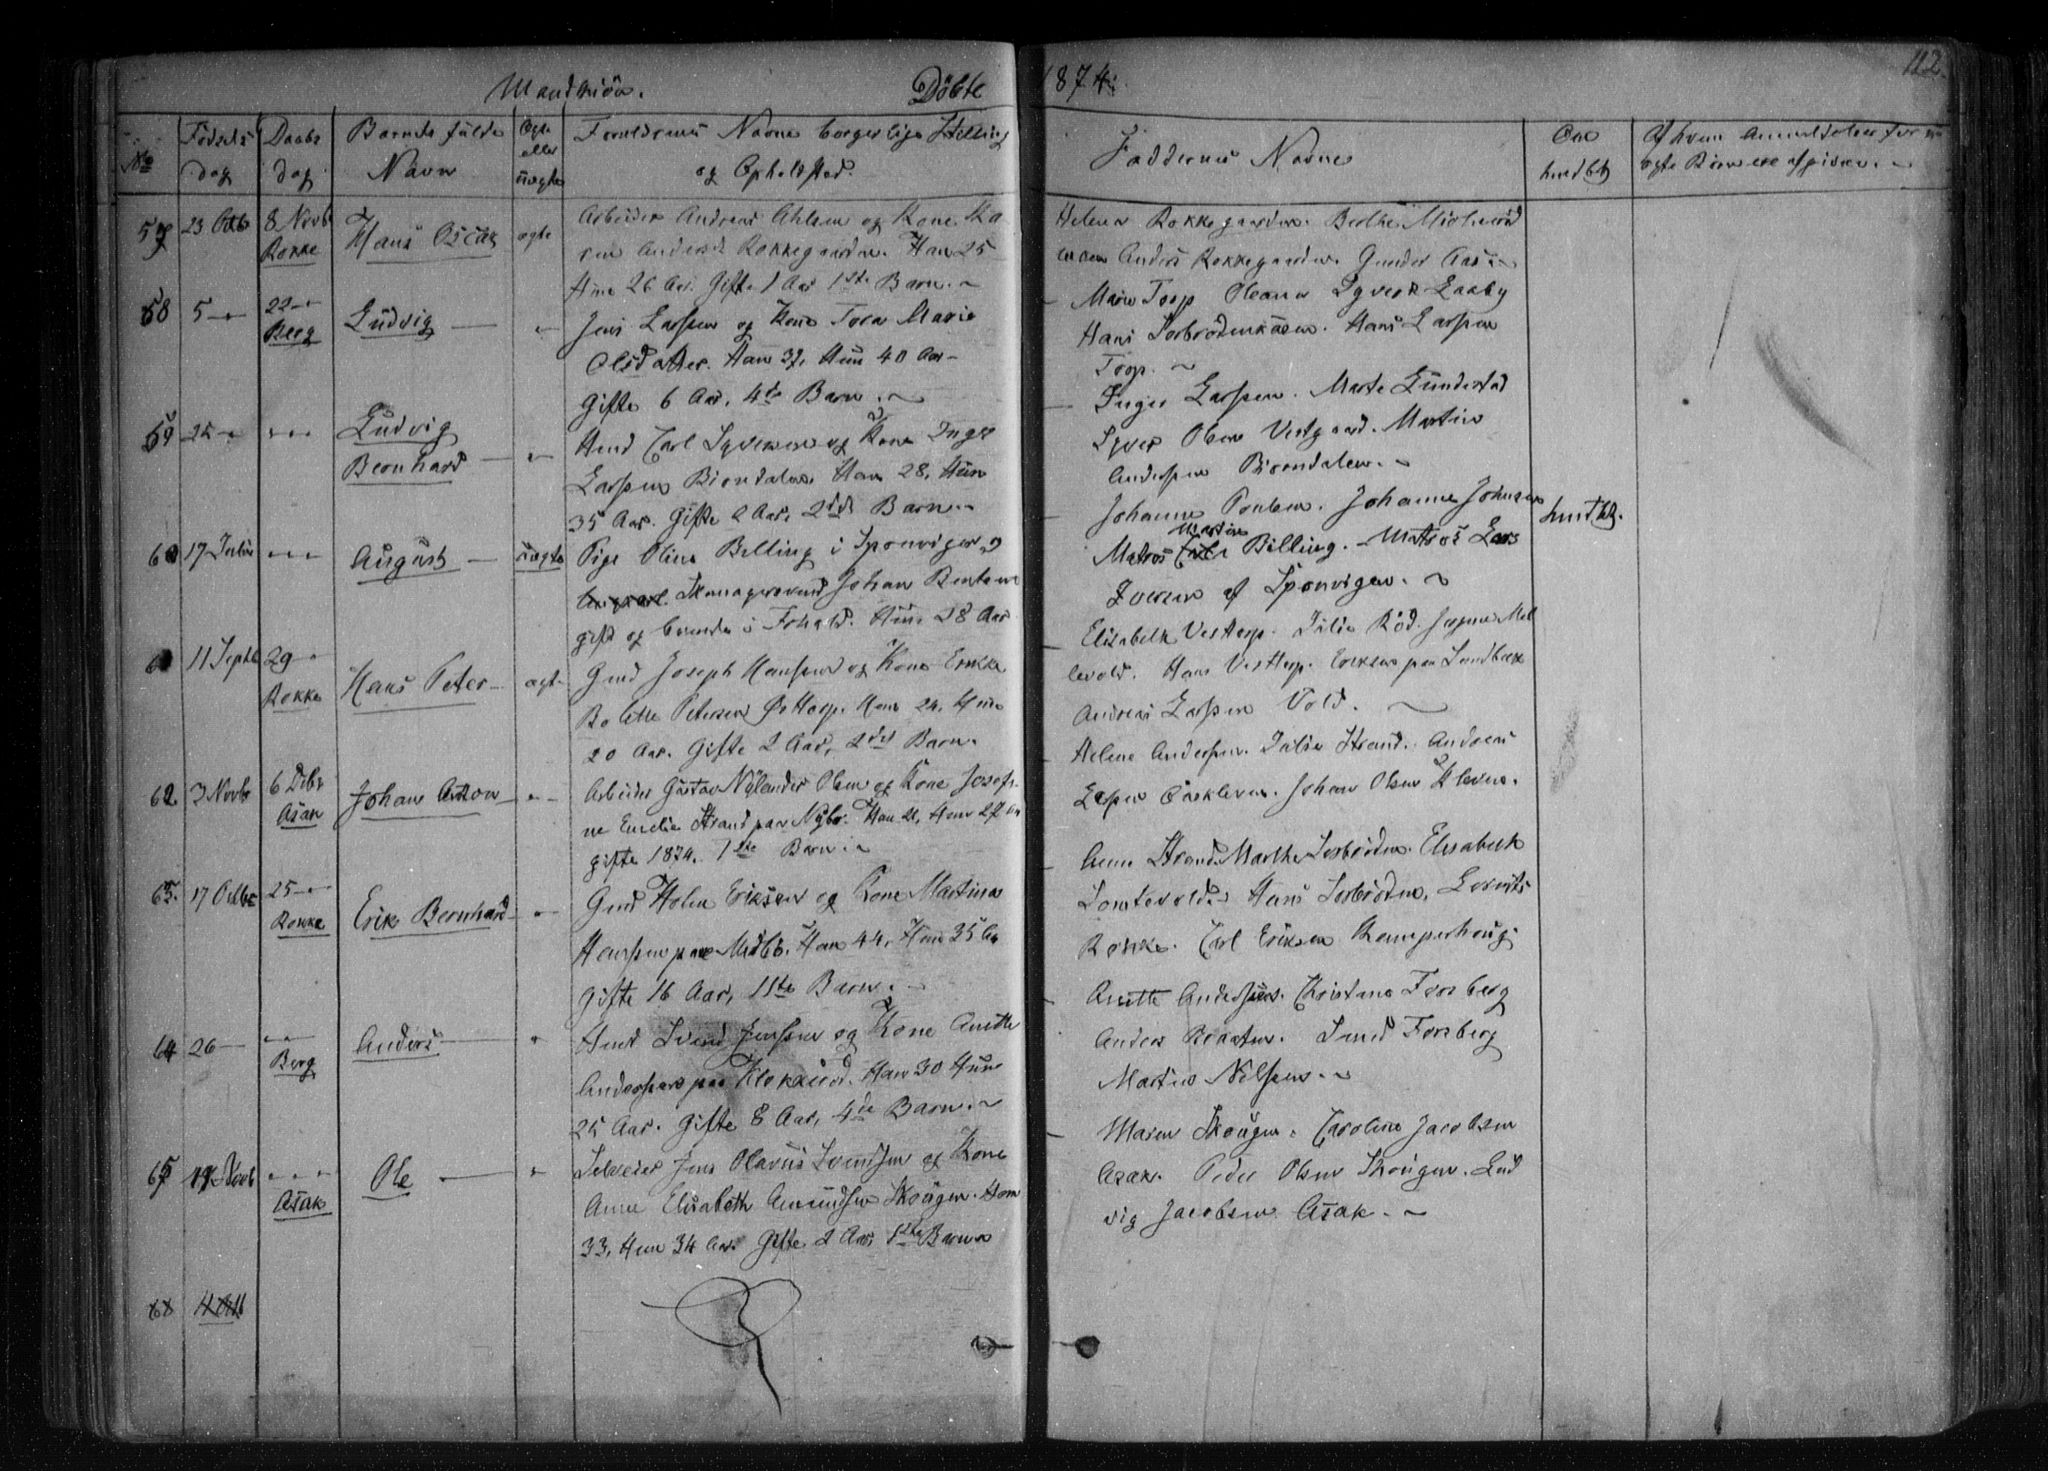 112.
Mandkiön. Döbte 1874.
No Födsels dag Daabs dag Barnets fulde Navn Ægte eller uægte Foreldrenes Navne borgerlige Stilling og Opholdsted. Faddernes Navne Om hmdbt Af hvem Anmeldelser for uægte Börn ere afgivne.
57 23 Octb 8 Novb Rokke Hans Oscar ægte
Arbeider Andreas Ahlsen og Kone Ka
ren Andersd Rokkegaarden. Han 25
Hun 26 Aar. Gifte 1 Aar 1ste Barn.
Helena Rokkegaarden. Berthe
Anders Rokkegaarden. Gunder Aas
58 5 22 Berg Ludvig
Jens Larssen og Kone Tora Marie
Olsdatter. Han 37, Hun 40 Aar
Gifte 6 Aar, 4de Barn.
Maren Torp Oleana Syvers
Hans Sorbrödenkaasen. Hans Larssen
Torp.
59 25 Ludvig
Bernhard
Hmd Carl Syversen og Kone Inger
Larssen Biöndalen Han 28, Hun
35 Aar. Gifte 2 Aar, 2det Barn.
Inger Larssen. Marte Gunderstad
Syver Olsen Vestgaard. Martin
Anderssen Biöndalen.
60 17 Julii August uægte
Pige Oline Billing i Sponvigen og
Skomagersvend Johan Bentsen
gift og boende i Frhald. Hun 28 Aar
Johanne Poulsen. Johanne Johnsen
Matros Martin Billing. Matros Lars
Iversen af Sponvigen.
hmdbt.
61 11 Septb 29 Rokke Hans Peter ægt
Gmd Joseph Hanssen og Kone
Bolette Petersen Østtorp. Han 24, Hun
20 Aar. Gifte 2 Aar, 2det Barn.
Elisabeth Vesttorp. Julie Röd. Mel
levold. Hans Vesttorp.
Andreas Larssen Vold.
62 3 Novb 6 Decbr Asak Johan Anton
Arbeider Gustav Nylander Olsen og Kone Josefi
ne Emelie Strand paa Nybr. Han 21, Hun 27 Aar
gifte 1874. 1ste Barn.
Helene Anderssen. Julie Strand. Andreas
Johan Olsen Kleven.
63. 17 Octbr 25 Rokke Erik Bernhard
Gmd Holm Eriksen og Kone Martina
Hanssen paa Han 44, Hun 35 Aar
Gifte 16 Aar, 11te Barn.
Anne Strand. Marthe Sorbröden. Elisabeth
Hans Sorbröden,
Rokke. Carl Eriksen
64 26 Berg Anders
Hmd Svend Jenssen og Kone Anette
Anderssen paa Klokkerod. Han 30 Hun
25 Aar. Gifte 8 Aar, 4de Barn.
Anette Anderssen. Christine Forsberg
Anders Svend Forsberg
Martin Nilssen.
65 Novb Asak Ole
Selveier Jens Olavus Svendsen og Kone
Anne Elisabeth Amundsen Skougen. Han
33, Hun 34 Aar. Gifte 2 Aar, 1ste Barn
Maren Skougen. Caroline Jacobsen
Asak. Peder Olsen Skougen. Lud
vig Jacobsen Asak.